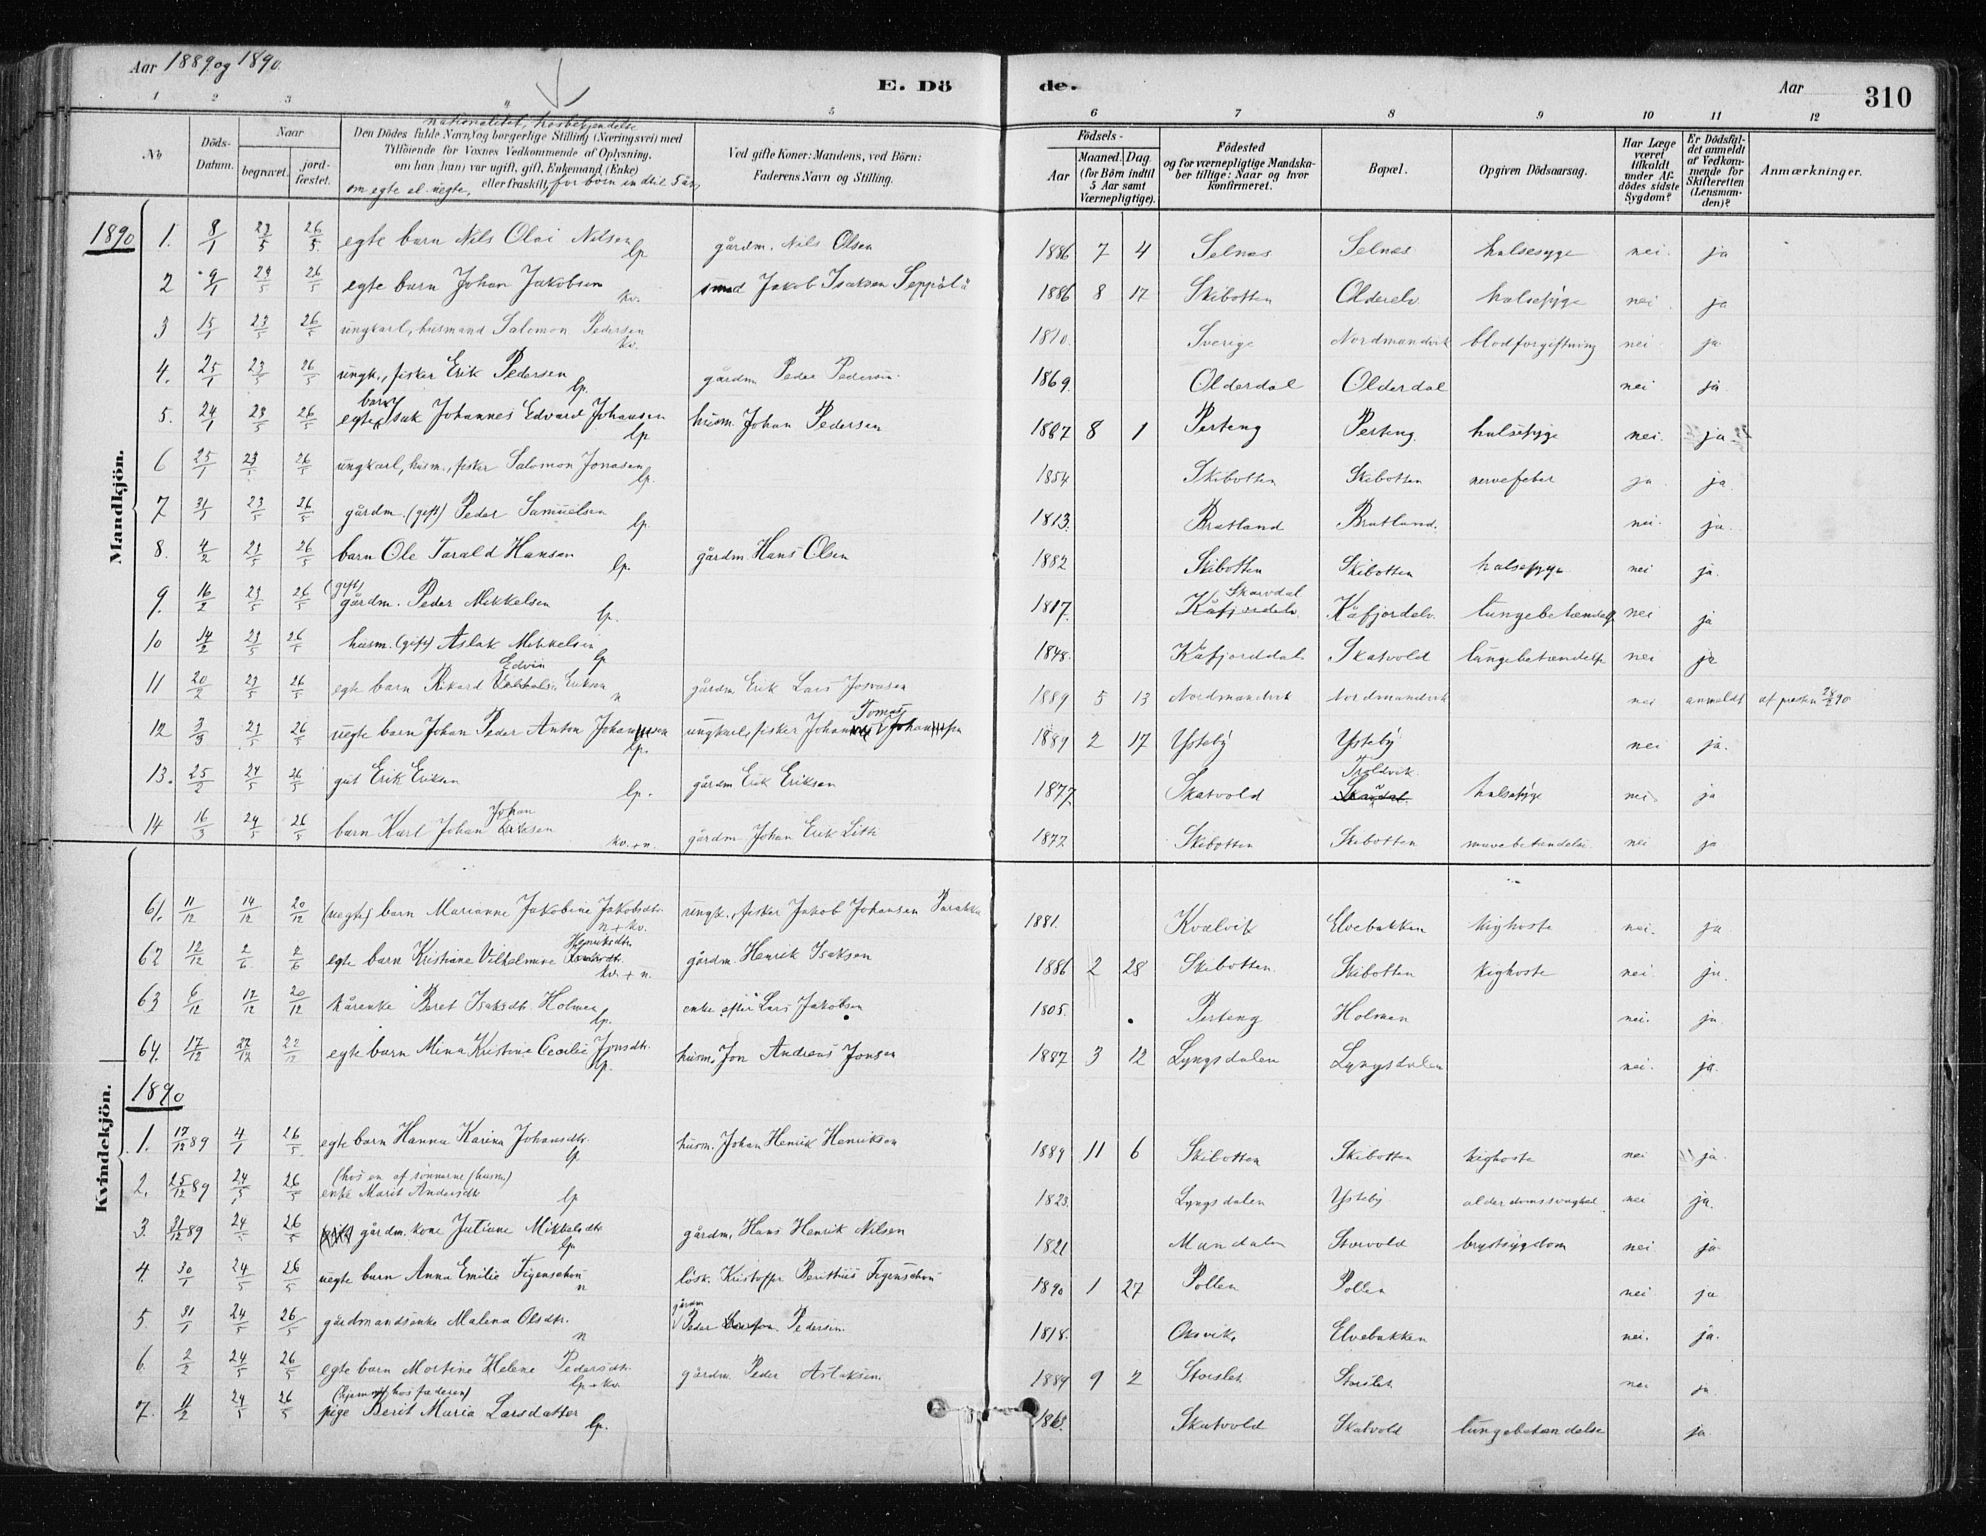 Aar 1889 og 1890.
E. Döde.
Aar
310
1 2 3 4 5 6 7 8 9 10 11 12
No
Döds-Datum.
Naar
begravet.
jord-fæstet.
nationalitet, hosbekjendelse
Den Dödes fulde Navn og borgerlige Stilling (Næringsvei) med
Tilföiende for Voxnes Vedkommende af Oplysning,
om han (hun) var ugift, gift, Enkemand (Enke)
eller fraskilt, for börn indtil 5 år,
om egte el. uegte.
Ved gifte Koner: Mandens, ved Börn:
Faderens Navn og Stilling.
Födsels-
Aar
Maaned. Dag.
(for Börn indtil 5 Aar samt Værnepligtige).
Födested
og for værnepligtige Mandska-
ber tillige: Naar og hvor
konfirmeret.
Bopæl.
Opgiven Dödsaarsag.
Har Læge været tilkaldt under Af-dödes sidste Sygdom?
Er Dödsfal-det anmeldt af Vedkom-mende for Skifteretten (Lensman-den)?
Anmærkninger.
Mandkjön.
1890 1. 8/1 23/5 26/5 egte barn Nils Olai Nilsen lp gårdm. Nils Olsen 1886 7 4 Selnæs Selnæs halsesyge nei. ja
2 9/1 23/5 26/5 egte barn Johan Jakobsen kv. smed Jakob Isaksen Seppälä 1886 8 17 Skibotten Olderelv halsesyge nei ja
3 15/1 23/5 26/5 ungkarl, husmand Salomon Pedersen kv. 1810. Sverige Nordmandvik blodforgiftning nei. ja.
4. 25/1 23/5 26/5 ungk., fisker Erik Pedersen lp. gårdm. Peder Pedersen. 1869. Olderdal Olderdal nei ja
5. 24/1 23/5 26/5 egte barn Isak Johannes Edvard Johansen lp husm. Johan Pedersen 1887 8 1 Perteng Perteng. halsesyge nei. ja
6 25/1 23/5 26/5 ungkarl, husm., fisker Salomon Jonasen lp. 1854 Skibotten Skibotten nervefeber ja ja.
7 31/1 23/5 26/5 gårdm. (gift) Peder Samuelsen lp. 1813. Bratland Bratland. nei. ja.
8. 4/2 23/5 26/5 barn Ole Tarald Hansen lp. gårdm. Hans Olsen 1882 Skibotten Skibotten halsesyge nei ja.
9. 16/2 23/5 26/5 (gift) gårdm. Peder Mikkelsen lp. 1817. Skardal Kåfjordelv. Kåfjordelv. lungebetændelse nei ja
10 14/2 23/5 26/5 husm. (gift) Aslak Mikkelsen lp 1848. Kåfjorddal Skatvold lungebetændelse nei ja
11 20/2 23/5 26/5 egte barn Rikard Edvin Eriksen n gårdm. Erik Lars Josvasen 1889 5 13 Nordmandvik Nordmandvik nei anmeldt af presten 90
12 3/3 23/5 26/5 uegte barn Johan Peder Anton Johansen lp. ungkarl, fisker Johan Tomas Johansen 1889 2 17 Ysteby Ysteby nei ja.
13. 25/2 24/5 26/5 gut Erik Eriksen lp. gårdm Erik Eriksen 1877 Skatvold Troldvik. Skardal. halsesyge nei ja
14 16/3 24/5 26/5 barn Karl Johan Johan kv. + n. gårdm. Johan Erik Litti 1872 Skibotten Skibotten mavebetændelse nei ja
Kvindekjön.
61. 11/12 14/12 20/12 (uegte) barn Marianne Jakobine Jakobsdtr. n + kv. ungk., fisker Jakob Johansen 1881. Kvalvik Elvebakken kighoste nei. ja
62 12/12 2/6 2/6 egte barn Kristiane Vilhelmine Henriksdtr. kv. + n. gårdm. Henrik Isaksen 1886 2 28 Skibotten. Skibotten kighoste nei. ja.
63 6/12 17/12 20/12 kårenke Beret Isaksdtr. Holmen lp. enke efter Lars Jakobsen 1805. Perteng Holmen nei. ja.
64. 17/12 22/12 22/12 egte barn Mina Kristine Cecilie Jonsdtr. lp. husm. Jon Andreas Jonsen 1887 3 12 Lyngsdalen Lyngsdalen nei. ja.
1890
1. 17/12 89 4/1 26/5 egte barn Hanna Karina Johansdtr. lp husm. Johan Henrik Henriksen 1889 11 6 Skibotten Skibotten kighoste nei ja.
2. 25/12 89 24/5 26/5 (hos en af sönnerne (husm) enke Marit Andersdtr lp 1823. Lyngsdalen Ysteby alderdomssvaghed nei ja.
3. 31/12 89 24/5 26/5 gårdm. kone Juliane Mikkelsdtr lp gårdm. Hans Henrik Nilsen 1821 Mandalen Storvold brystsygdom nei. ja.
4. 30/1 24/5 26/5 uegte barn Anna Emilie Figenschou n lösk. Kristoffer Figenschou 1890 1 27 Pollen Pollen nei. ja
5. 31/1 24/5 26/5 gårdmandsenke Malena Olsdtr. n gårdm Peder Pedersen. 1818. Oksvik. Elvebakken nei. ja.
6. 2/2 24/5 26/5 egte barn Mortine Helene Pedersdtr. lp + kv. gårdm. Peder Aslaksen 1889 9 2 Storslet Storslet nei ja
7. 11/2 24/5 26/5 (hjemme hos faderen) pige Berit Maria Larsdatter lp. 1863. Skatvold Skatvold lungebetændelse ja.